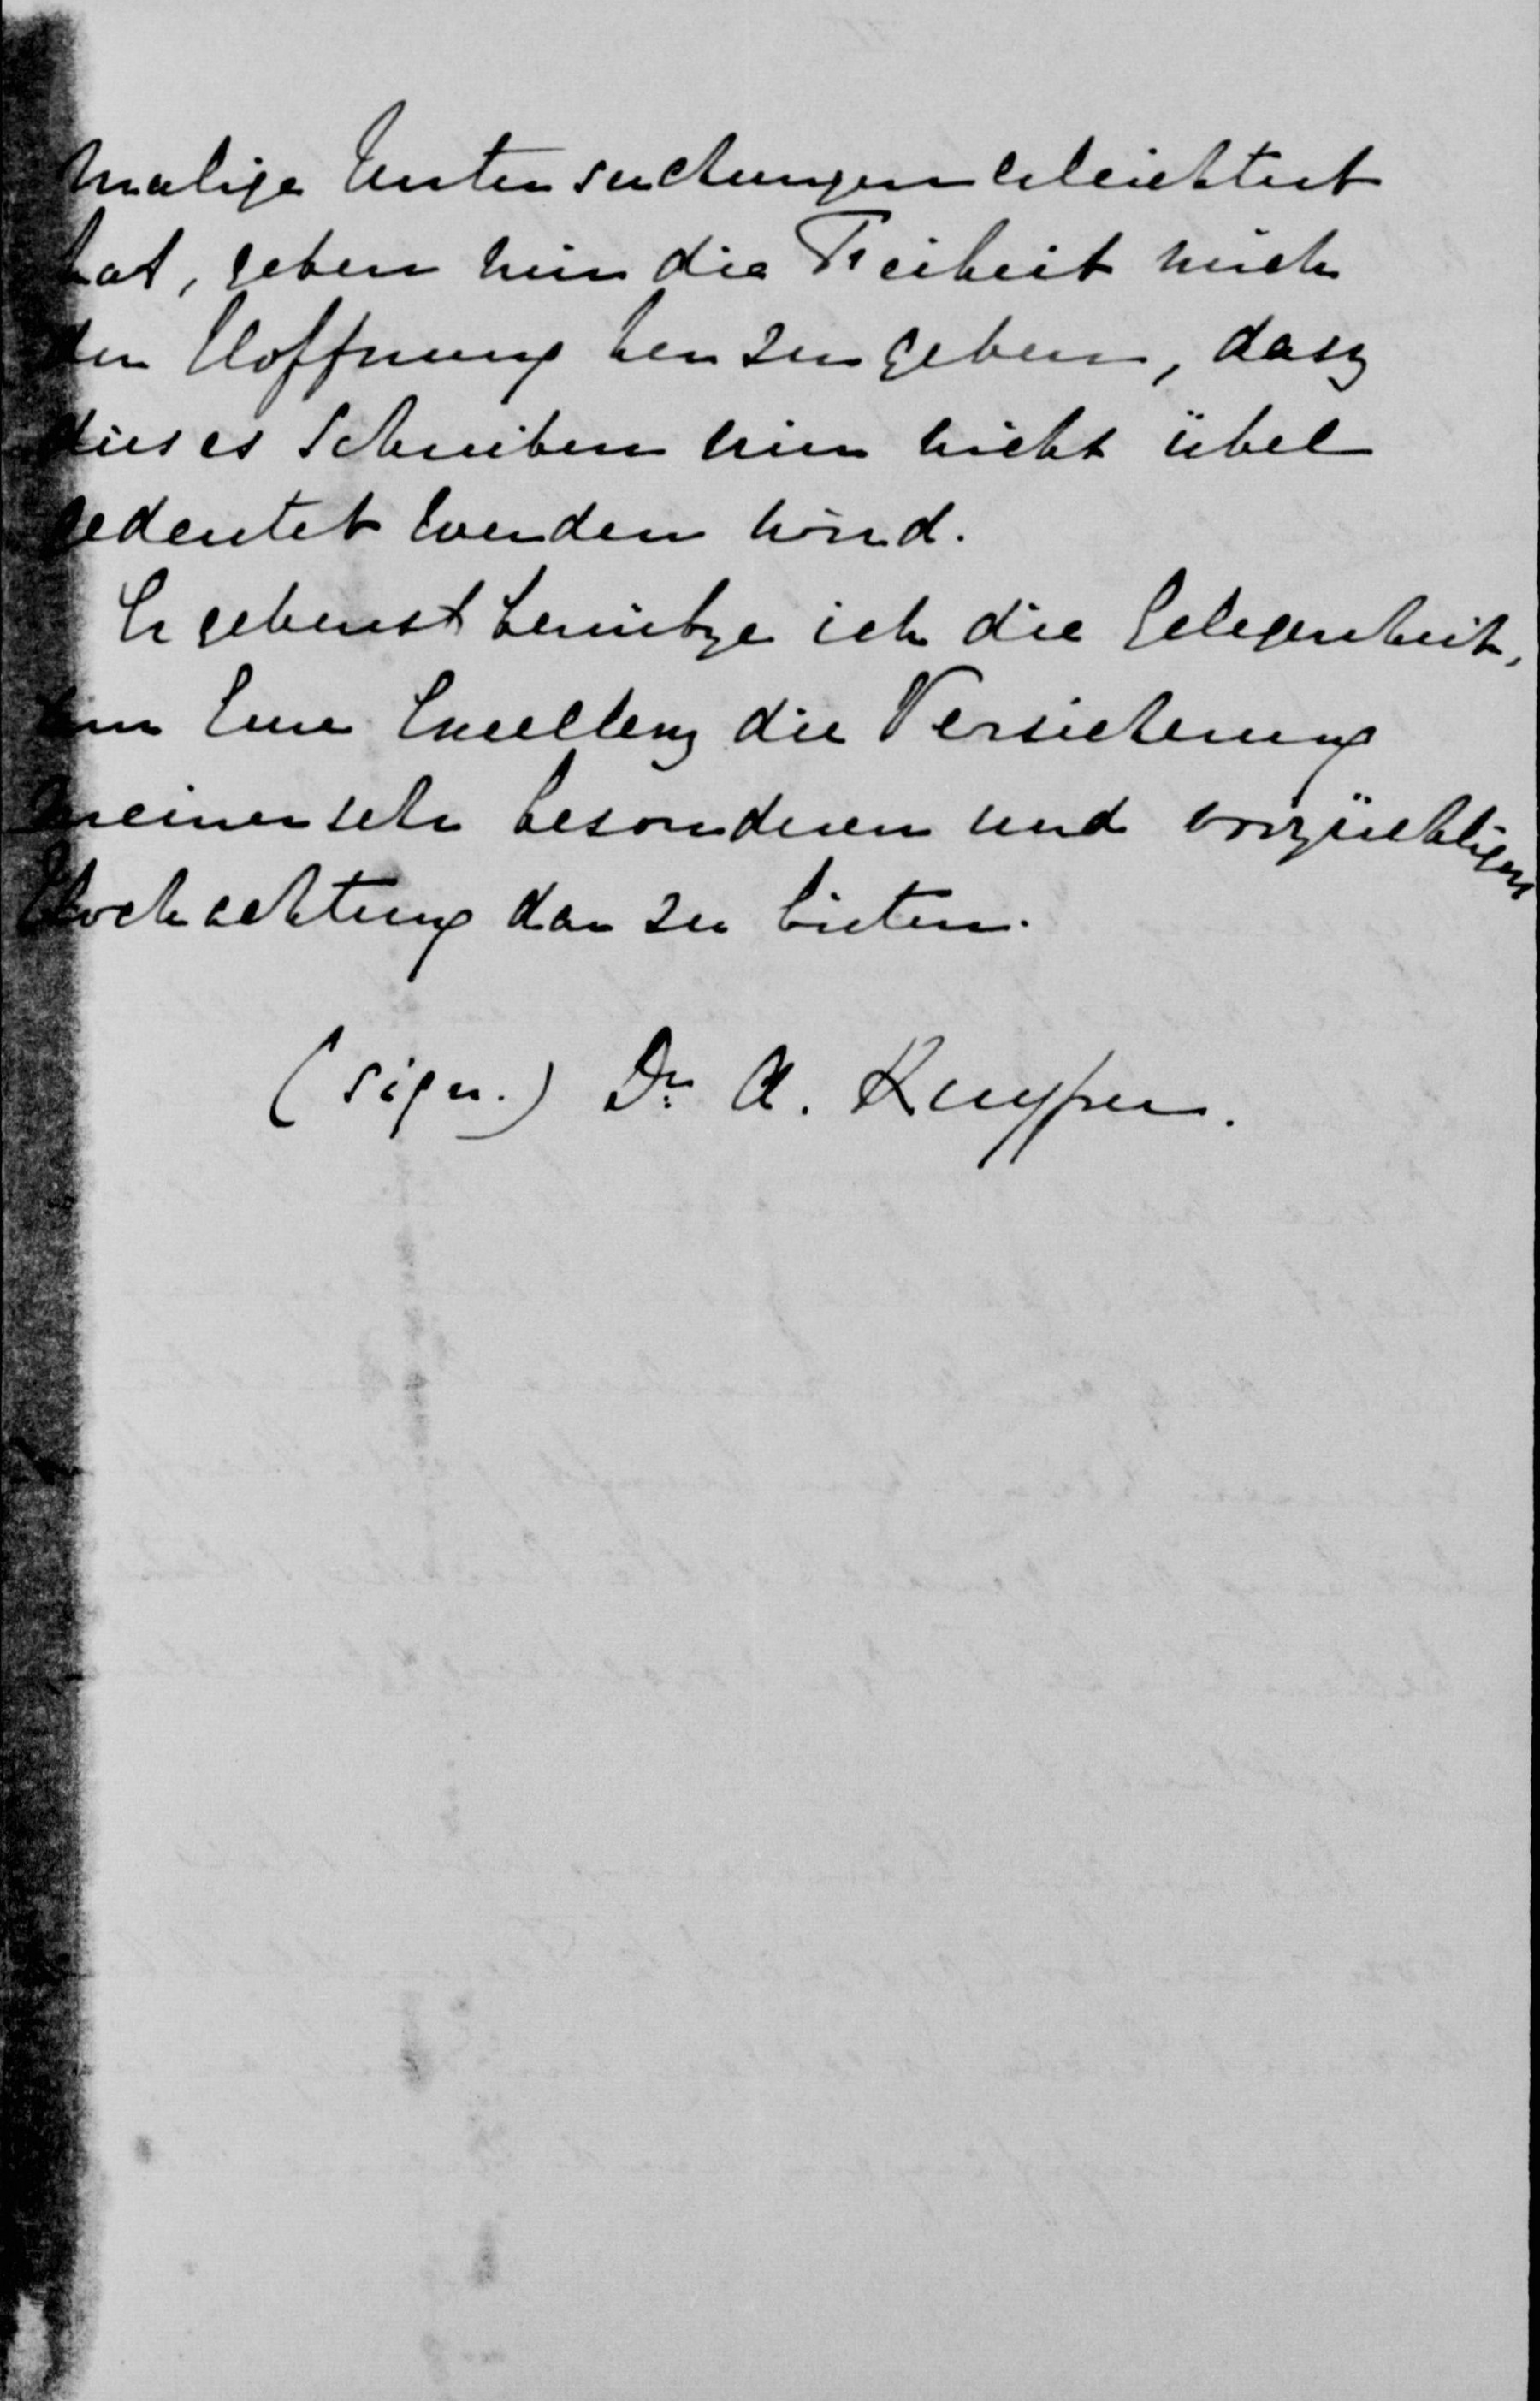 malige Untersuchungen erleichtert
hat, geben mir die Freiheit mich
der Hoffnung her zu geben, dasz
dieses Schreiben mir nicht übel
gedeutet werden wird.
Ergebenst benütze ich die Gelegenheit,
um Eure Excellenz die Versicherung
meiner sehr besonderen und vorzüchligen
Hochachtung dar zu bieten.
(sign.) Dr. A. Kuyper.